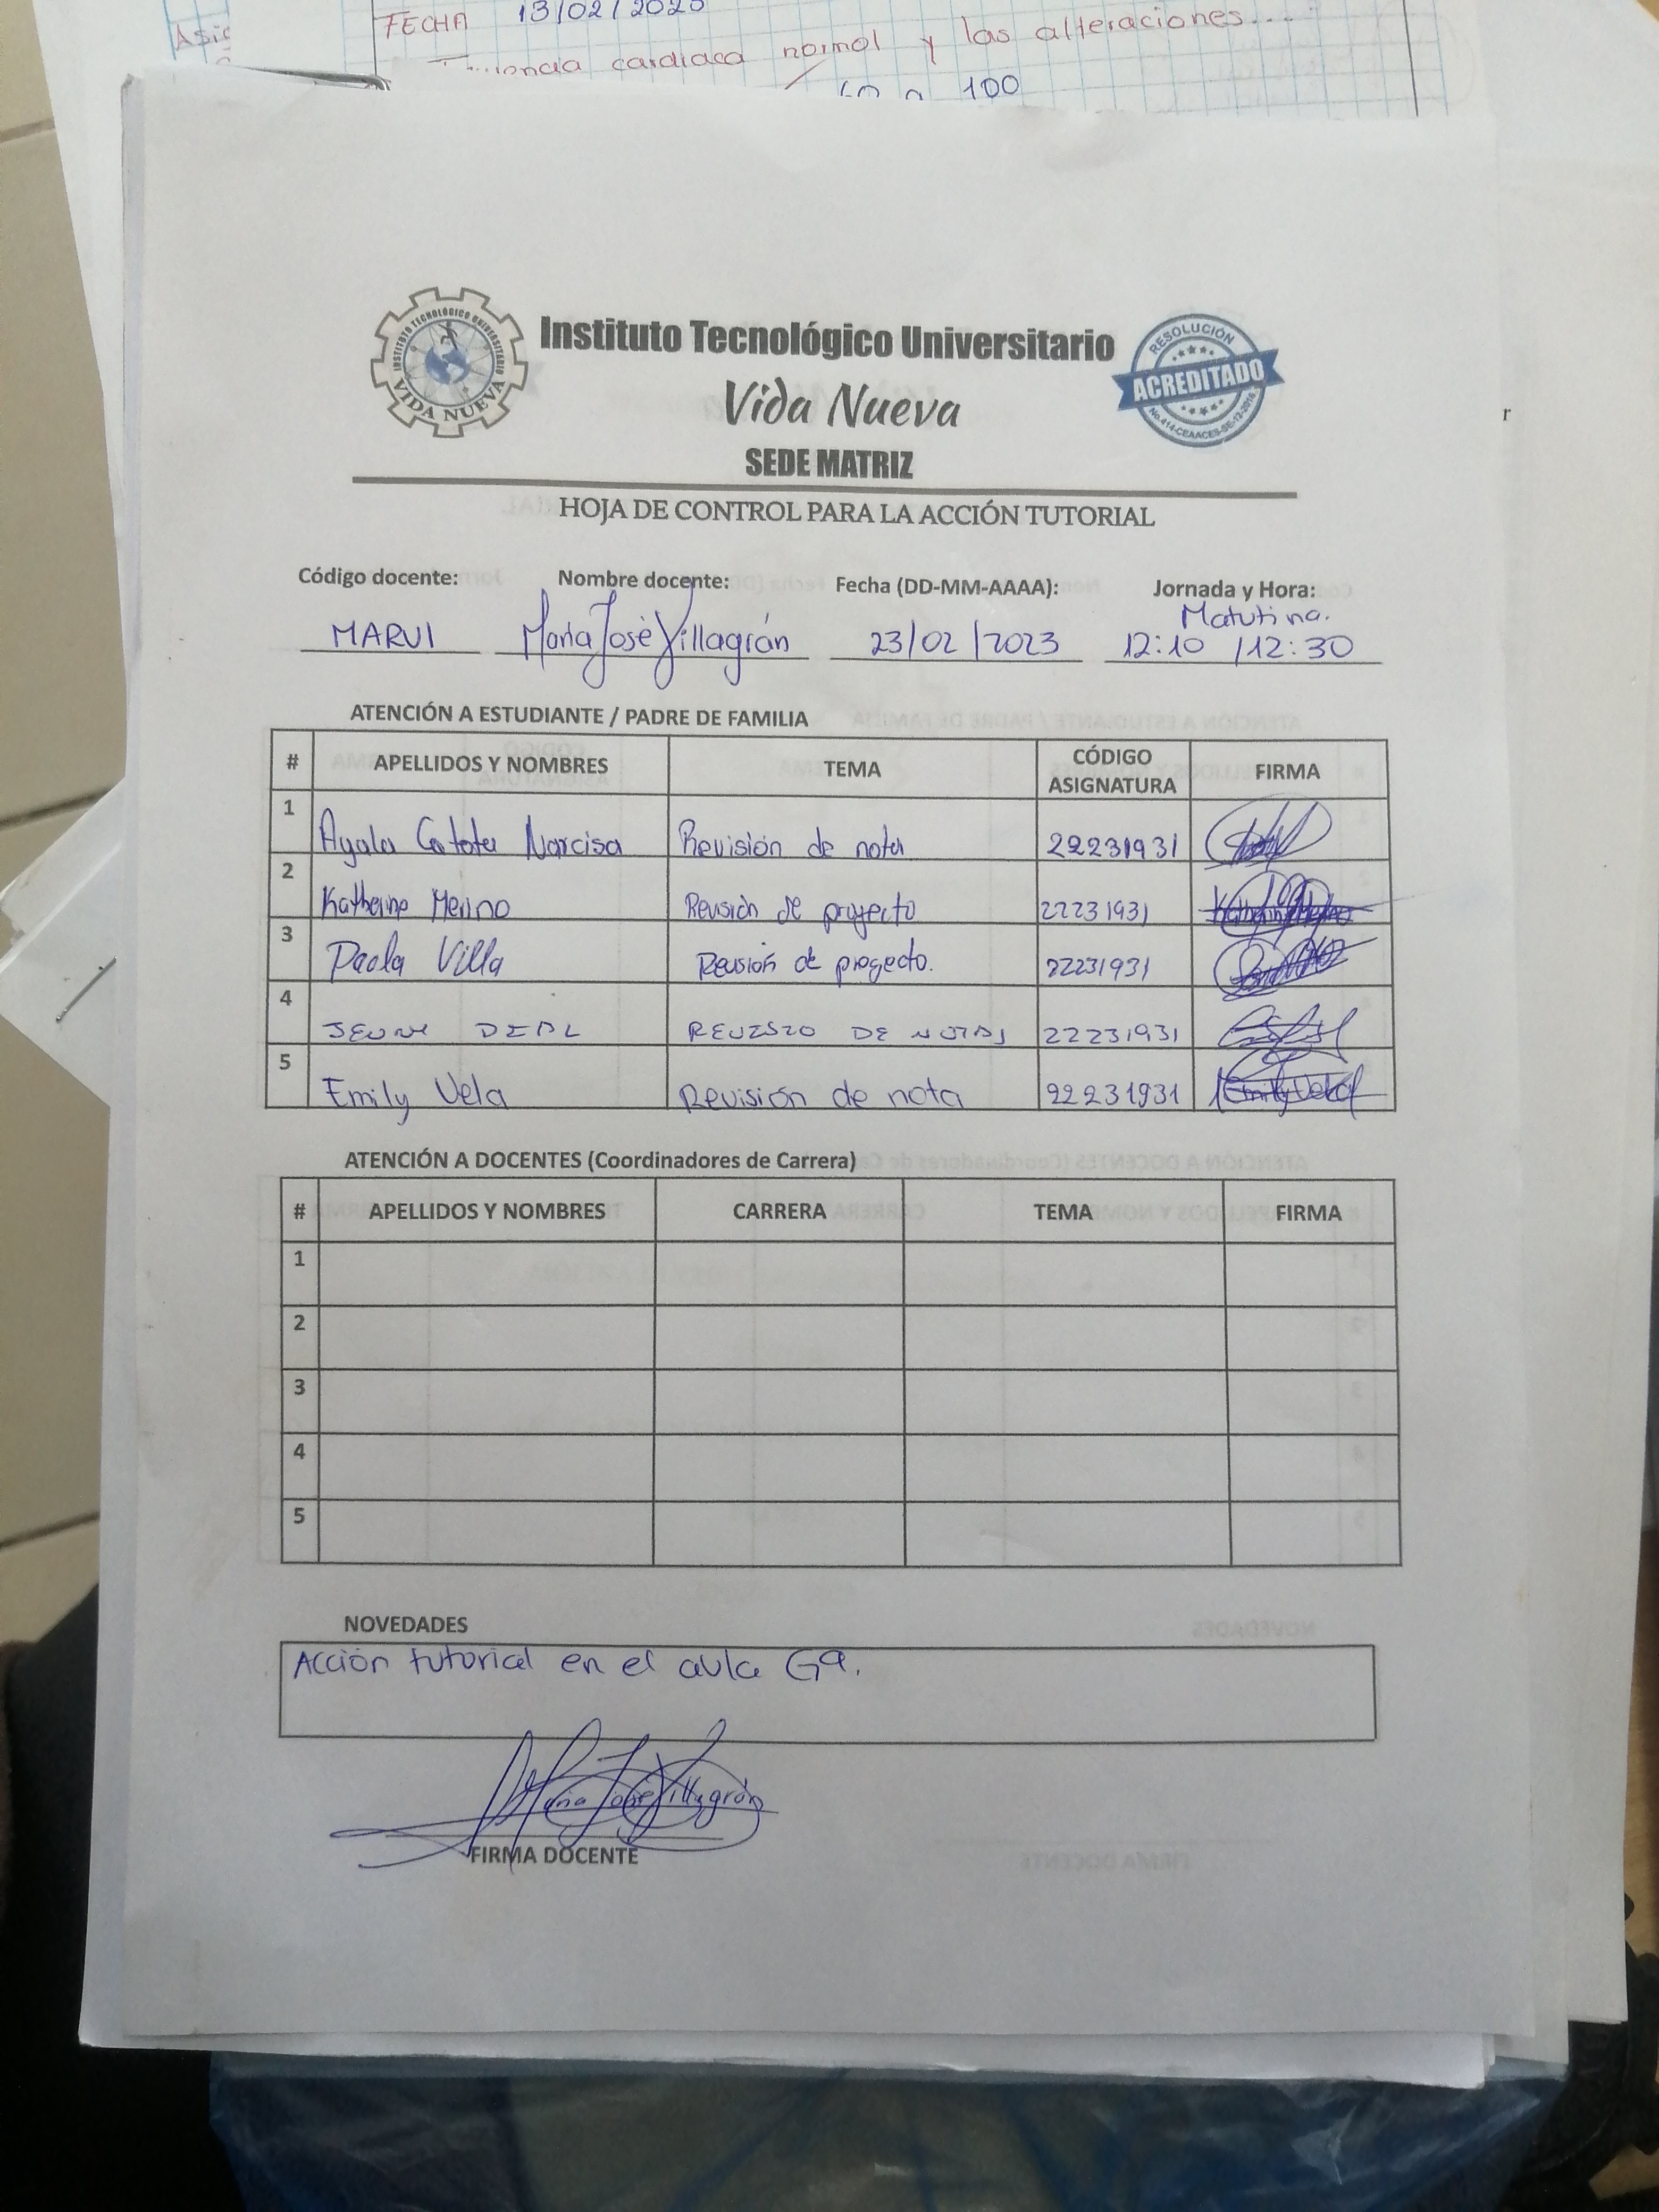 FECHA 13/02/2023
cardiaca normal y las alteraciones...
100
INSTITUTO TECNOLÓGICO UNIVERSITARIO
VIDA NUEVA
Instituto Tecnológico Universitario
Vida Nueva
SEDE MATRIZ
RESOLUCIÓN
ACREDITADO
No.414-CEAACES-SE-12-2016
HOJA DE CONTROL PARA LA ACCIÓN TUTORIAL
Código docente: Nombre docente: Fecha (DD-MM-AAAA): Jornada y Hora:
Matutina.
MARVI María José Villagrán 23/02/2023 12:10 /12:30
ATENCIÓN A ESTUDIANTE / PADRE DE FAMILIA
# APELLIDOS Y NOMBRES TEMA CÓDIGO ASIGNATURA FIRMA
1 Ayala Catota Narcisa Revisión de nota 22231931
2 Katherine Merino Revisión de proyecto 22231931
3 Paola Villa Revisión de proyecto. 22231931
4 REVISIO DE NOTAS 22231931
5 Emily Vela Revisión de nota 22231931 Emily Vela
ATENCIÓN A DOCENTES (Coordinadores de Carrera)
# APELLIDOS Y NOMBRES CARRERA TEMA FIRMA
1
2
3
4
5
NOVEDADES
Acción tutorial en el aula G9.
María José Villagrán
FIRMA DOCENTE